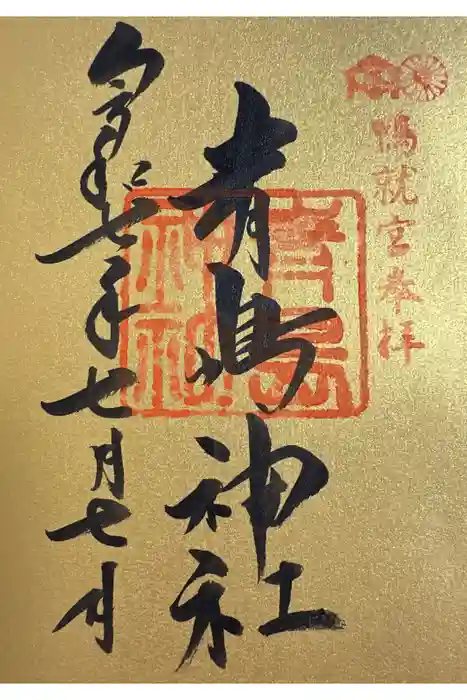 鴨就宮奉拝
青島神社
青島
神社
令和七年七月七日